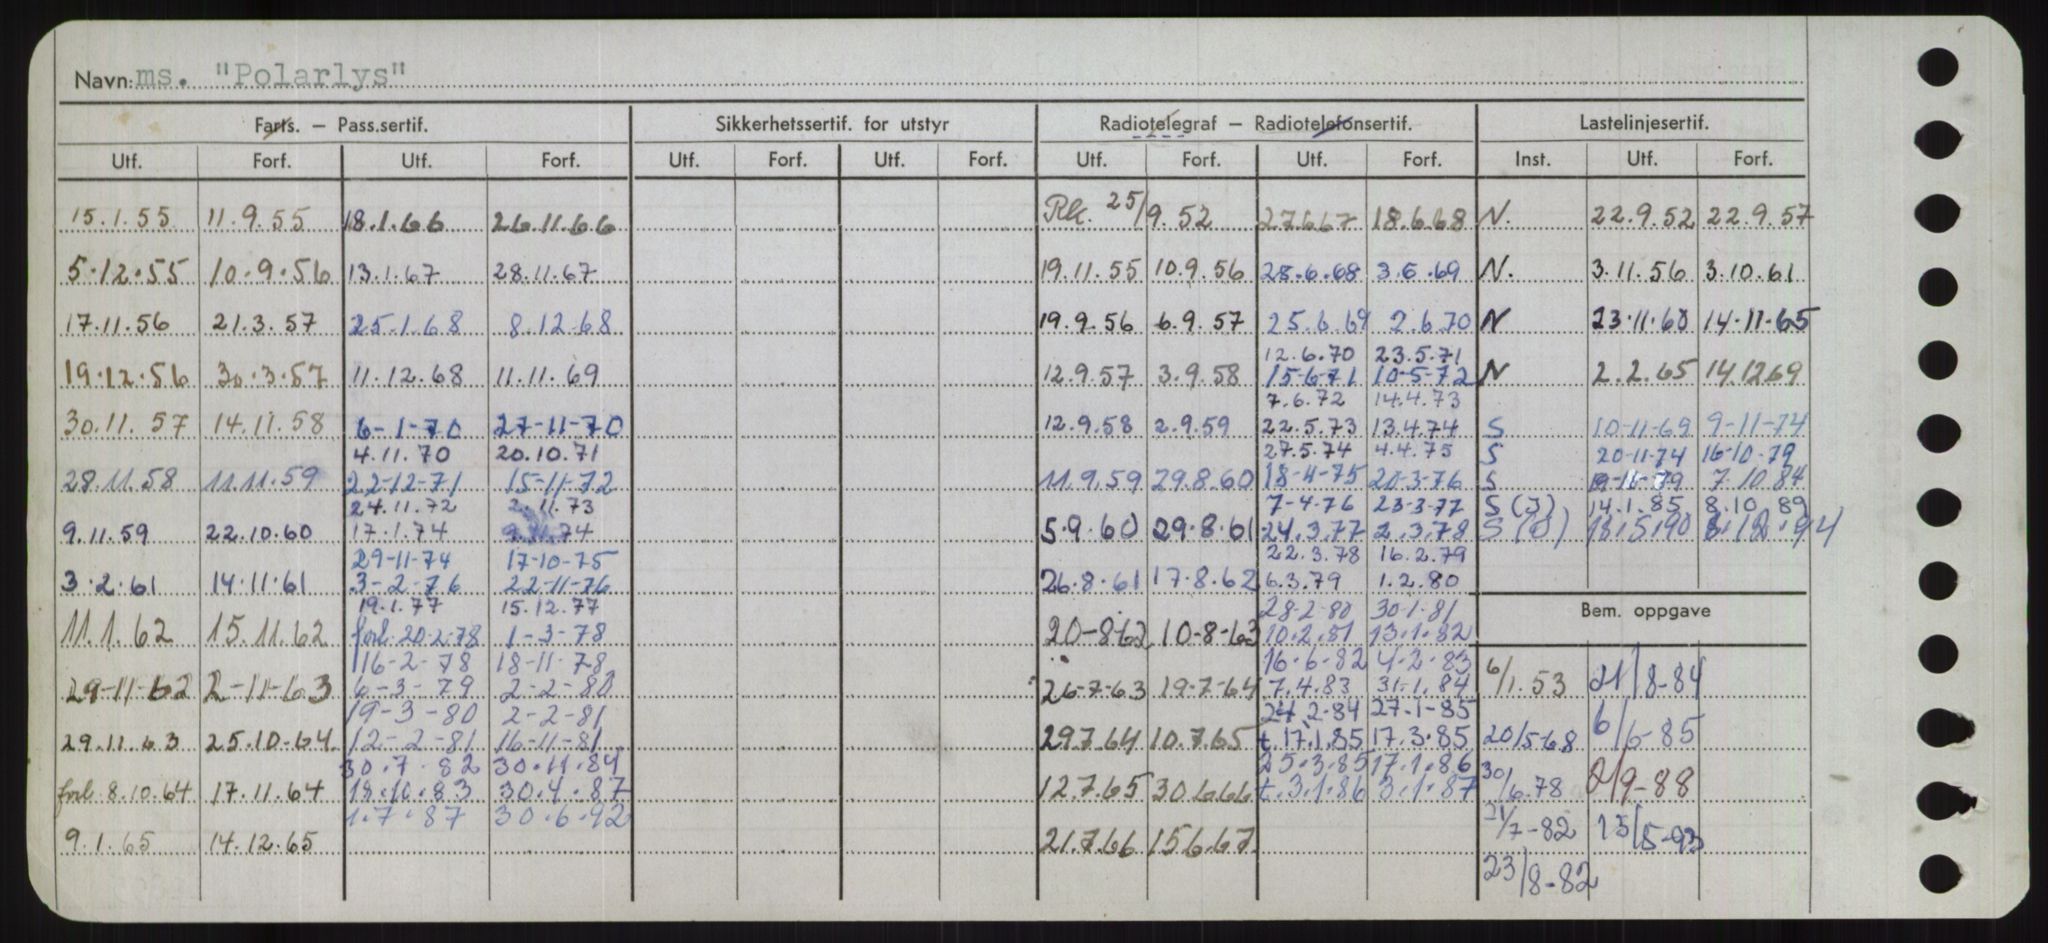 Navn: ms. "Polarlys"
Farts. – Pass.sertif. Sikkerhetssertif. for utstyr Radiotelegraf – Radiotelefonsertif. Lastelinjesertif.
Utf. Forf. Utf. Forf. Utf. Forf. Utf. Forf. Utf. Forf. Utf. Forf. Inst. Utf. Forf.
15.1.55 11.9.55 18.1.66 26.11.66 Rk. 25/9.52 27.6.67 18.6.68 N. 22.9.52 22.9.57
5.12.55 10.9.56 13.1.67 28.11.67 19.11.55 10.9.56 28.6.68 3.6.69 N. 3.11.56 3.10.61
17.11.56 21.3.57 25.1.68 8.12.68 19.9.56 6.9.57 25.6.69 2.6.70 N 23.11.60 14-11-65
12.6.70 23.5.71
19.12.56 30.3.57 11.12.68 11.11.69 12.9.57 3.9.58 15-6-71 10-5-72 N 2.2.65 14.12.69
7.6.72 14.4.73
30.11.57 14.11.58 6-1-70 27-11-70 12.9.58 2.9.59 22.5.73 13.4.74 S 10-11-69 9-11-74
4.11.70 20.10.71 27.5.74 4.4.75 S 20-11-74 16-10-79
28.11.58 11.11.59 22-12-71 15-11-72 11.9.59 29.8.60 18-4-75 20-3-76 S 7.10.84
24.11.72 2.11.73 7-4-76 23-3-77 S (J) 14.1.85 8.10 89
9.11.59 22.10.60 17.1.74 5.9.60 29.8.61 24.3.77 2.3.78 18.5.90
29-11-74 17-10-75 22.3.78 16.2.79
3.2.61 14.11.61 3-2-76 22-11-76 26.8.61 17.8.62 6.3.79 1.2.80
19.1.77 15.12.77 28-2-80 30-1-81 Bem. oppgave
11.1.62 15.11.62 forl. 20-2-78 1-3-78 20-8-62 10-8-63 10.2.81 13.1.82
16-2-78 18-11-78 16-6-82 4-2-83
29-11-62 2-11-63 6-3-79 2-2-80 26-7-63 19-7-64 7.4.83 31.1.84 6/1.53 21/8-84
19-3-80 2-2-81 24.2-84 27-1-85
29.11.63 25.10.64 12-2-81 16-11-81 29.7.64 10.7.65 t.17.1.85 17.3.85 20/5-68 6/6-85
30.7.82 30.11.84 25.3.85 17.1.86
forl. 8.10.64 17.11.64 18.10.83 30.4.87 12.7.65 30.6.66 t.3.1.86 3.1.87 30/6.78 2/9-88
1.7.87 30.6.92
9.1.65 14.12.65 21.7.66 15.6.67 21/7-82 13/5-93
23/8-82